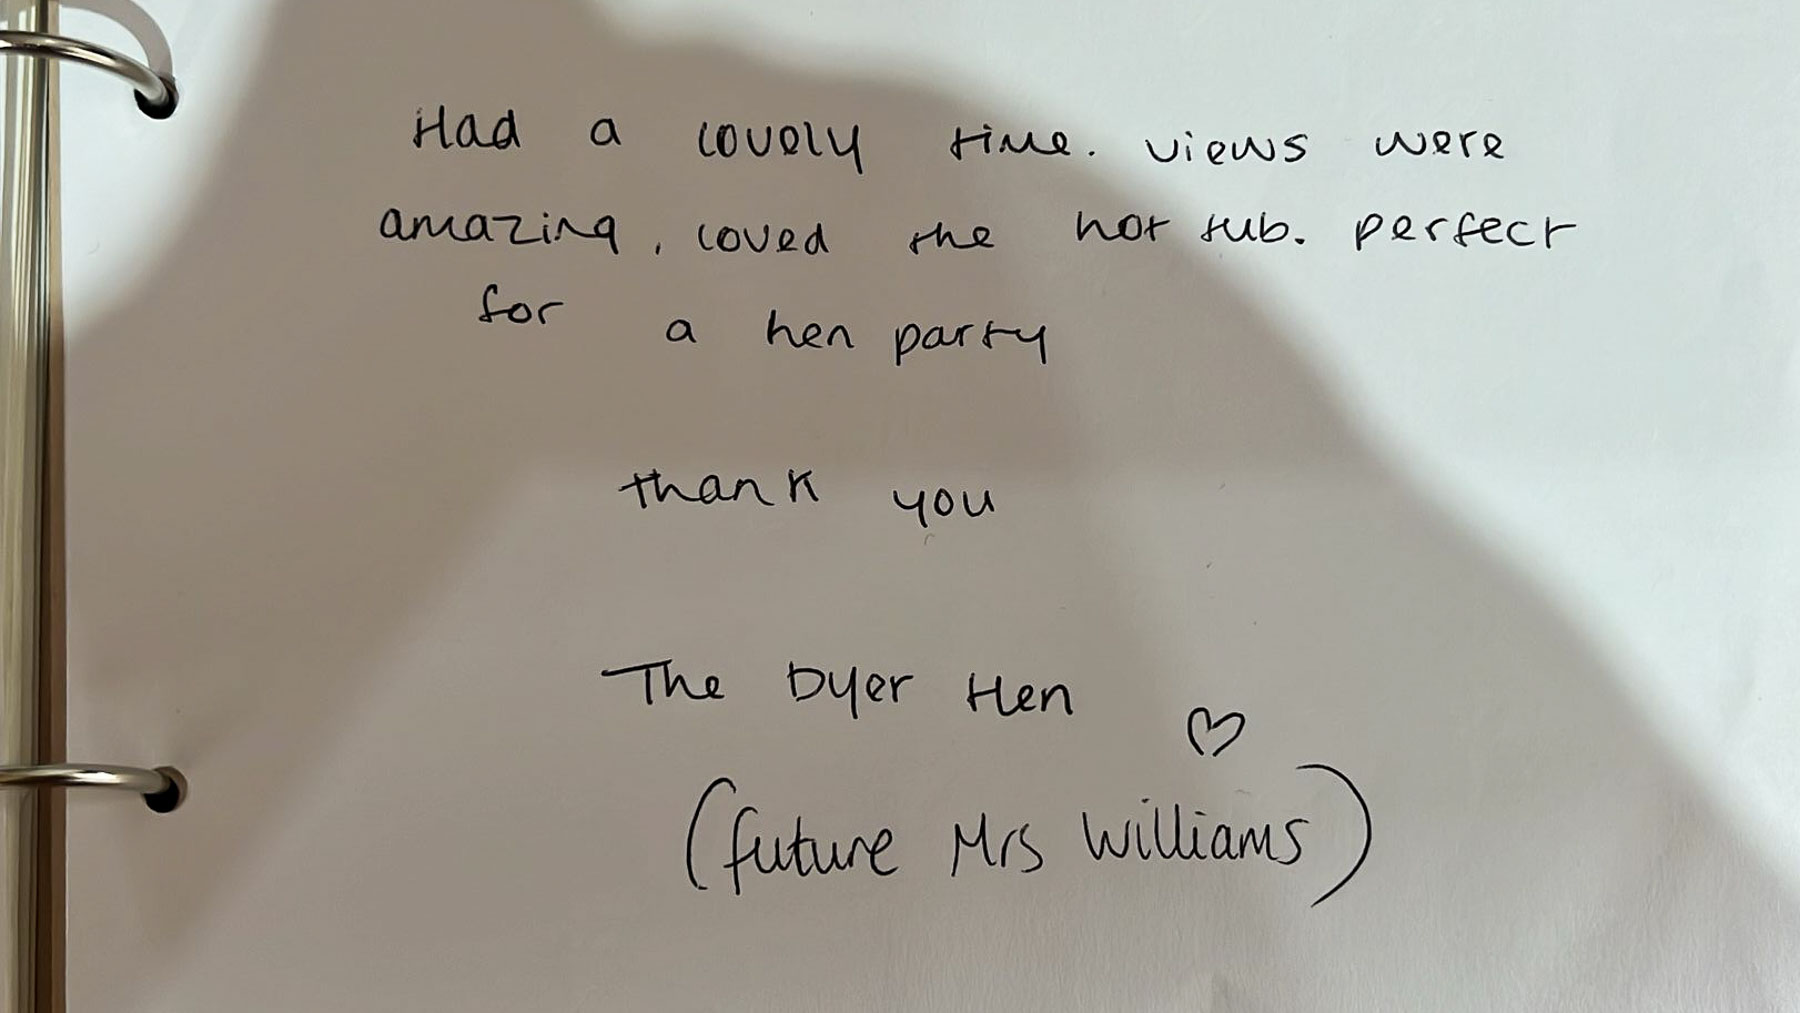 Had a lovely time. views were
amazing, loved the hot tub. perfect
for a hen party
thank you
The Dyer Hen ♡
(future Mrs Williams)